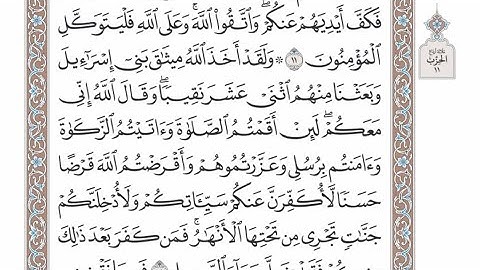 فَكَفَّ أَيْدِيَهُمْ عَنكُمْ ۖ وَٱتَّقُوا۟ ٱللَّهَ ۚ وَعَلَى ٱللَّهِ فَلْيَتَوَكَّلِ
ٱلْمُؤْمِنُونَ ١١ ۞ وَلَقَدْ أَخَذَ ٱللَّهُ مِيثَٰقَ بَنِىٓ إِسْرَٰٓءِيلَ
وَبَعَثْنَا مِنْهُمُ ٱثْنَىْ عَشَرَ نَقِيبًا ۖ وَقَالَ ٱللَّهُ إِنِّى
مَعَكُمْ ۖ لَئِنْ أَقَمْتُمُ ٱلصَّلَوٰةَ وَءَاتَيْتُمُ ٱلزَّكَوٰةَ
وَءَامَنتُم بِرُسُلِى وَعَزَّرْتُمُوهُمْ وَأَقْرَضْتُمُ ٱللَّهَ قَرْضًا
حَسَنًا لَّأُكَفِّرَنَّ عَنكُمْ سَيِّـَٔاتِكُمْ وَلَأُدْخِلَنَّكُمْ
جَنَّٰتٍ تَجْرِى مِن تَحْتِهَا ٱلْأَنْهَٰرُ ۚ فَمَن كَفَرَ بَعْدَ ذَٰلِكَ
الحزب
١١